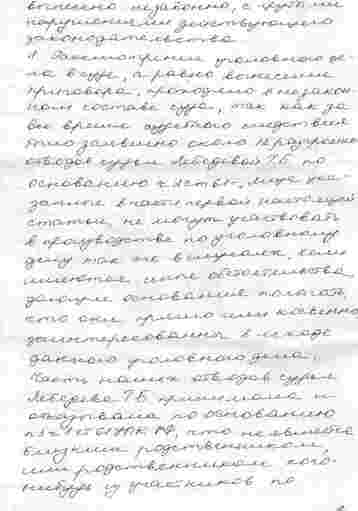 вынесено незаконно, с грубыми
нарушениями действующего
законодательства
1. Рассмотрение уголовного де-
ла в суде, а равно вынесение
приговора, проходило в незакон-
ном составе суда, так как за
все время судебного следствия
было заявлено около 10
отводов судьи Лебедевой Т.Б. по
основанию ч. 2 ст. 61, лица ука-
занные в части первой настоящей
статьи, не могут участвовать
в производстве по уголовному
делу так же в случаях, если
имеются иные обстоятельства,
дающие основания полагать,
что они прямо или косвенно
заинтересованы в исходе
данного уголовного дела.
Часть наших отводов судья
Лебедева Т.Б. принимала и
отказывала по основанию
п.3 ч.1 ст 61 УПК РФ, что не является
близким родственником,
или родственником кого-
нибудь из участников по